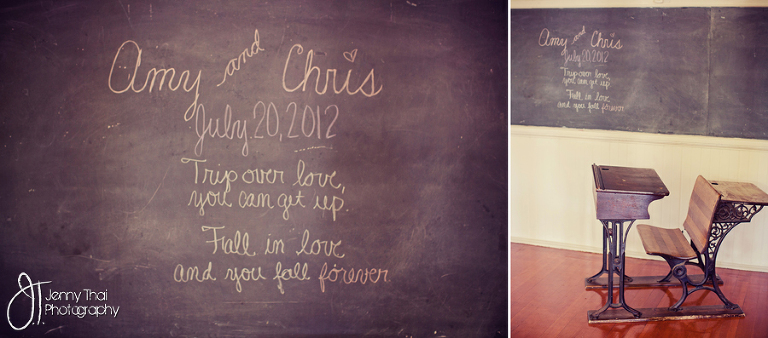 Amy and Chris
July 20, 2012
Trip over love,
you can get up.
Fall in love
and you fall forever.
JT. Jenny Thai
Photography
Amy and Chris
July 20, 2012
Trip over love,
you can get up.
Fall in love
and you fall forever.